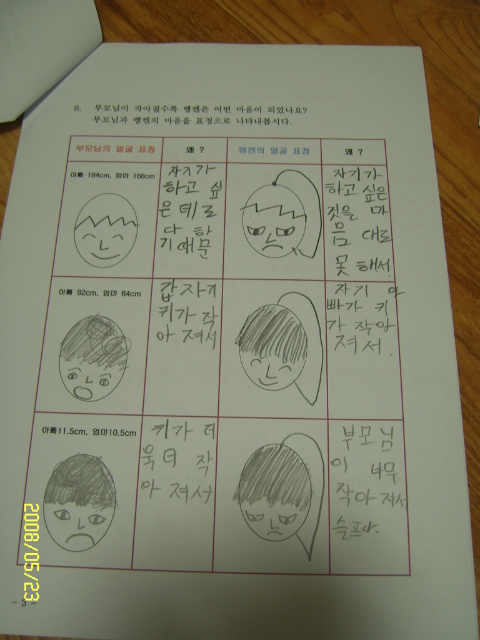 8. 부모님이 작아질수록 렝켄은 어떤 마음이 되었나요?
부모님과 렝켄의 마음을 표정으로 나타내봅시다.
부모님의 얼굴 표정
왜 ?
렝켄의 얼굴 표정
왜 ?
아빠 184cm, 엄마 168cm
자기가
하고 싶
은 데로
다 하
기 때문
자기가
하고 싶은
짓을 마
음 대로
못 해서.
아빠 92cm, 엄마 84cm
갑자기
키가 작
아 져서
자기 아
빠가 키
가 작아
져서.
아빠11.5cm, 엄마10.5cm
키가 더
욱 더 작
아 져서
부모님
이 너무
작아 져서
슬프다.
- 3 -
2008/05/23